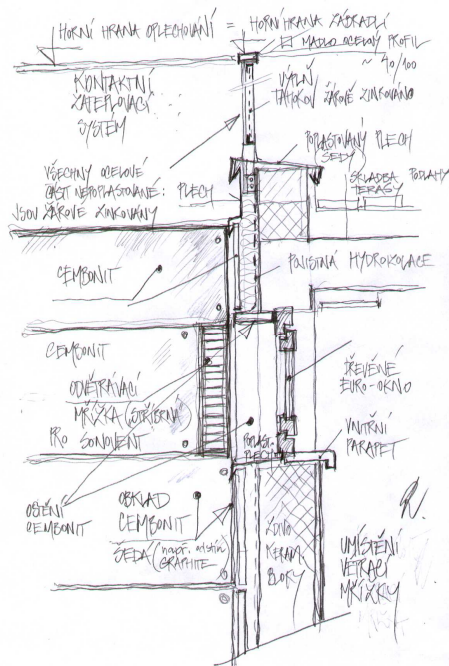 HORNÍ HRANA OPLECHOVÁNÍ = HORNÍ HRANA ZÁBRADLÍ
MADLO OCELOVÝ PROFIL
~ 40/100
KONTAKTNÍ
ZATEPLOVACÍ
SYSTÉM
VÝLŇ
TAHOKOV ŽÁROVĚ ZINKOVÁNO
POPLASTOVANÝ PLECH
ŠEDÝ
VŠECHNY OCELOVÉ
ČÁSTI NEPOPLASTOVANÉ:
JSOU ŽÁROVĚ ZINKOVÁNY
PLECH
SKLADBA PODLAHY
TERASY
CEMBONIT
POJISTNÁ HYDROIZOLACE
CEMBONIT
ODVĚTRÁVACÍ
MŘÍŽKA (STŘÍBRNÁ)
PRO SONOVENT
DŘEVĚNÉ
EURO-OKNO
VNITŘNÍ
PARAPET
POPLAST.
PLECH
OSTĚNÍ
CEMBONIT
OBKLAD
CEMBONIT
ŠEDÁ (např. odstín
GRAPHITE)
ZDIVO
KERAM.
BLOKY
UMÍSTĚNÍ
VĚTRACÍ
MŘÍŽKY